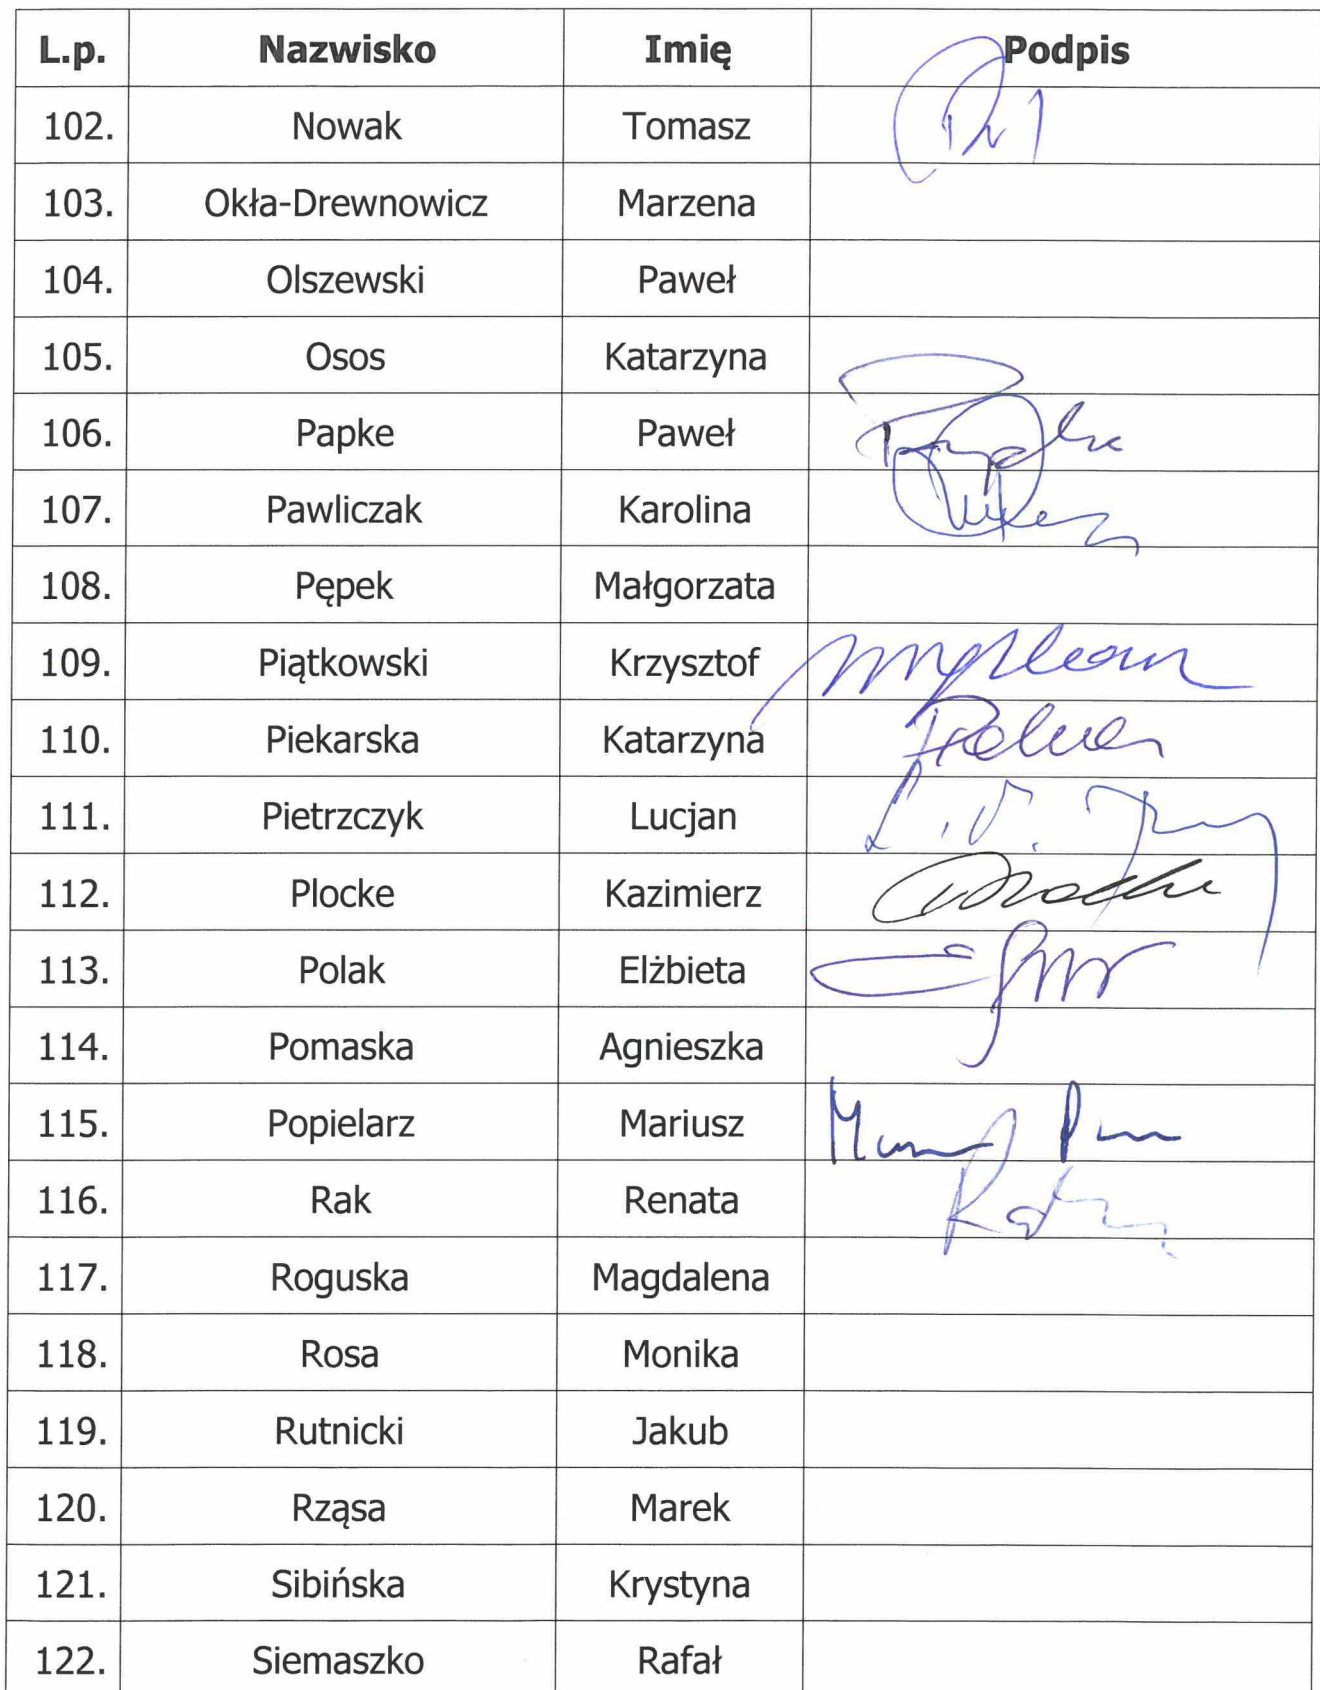 L.p. Nazwisko Imię Podpis
102. Nowak Tomasz
103. Okła-Drewnowicz Marzena
104. Olszewski Paweł
105. Osos Katarzyna
106. Papke Paweł
107. Pawliczak Karolina
108. Pępek Małgorzata
109. Piątkowski Krzysztof
110. Piekarska Katarzyna
111. Pietrzczyk Lucjan
112. Plocke Kazimierz
113. Polak Elżbieta
114. Pomaska Agnieszka
115. Popielarz Mariusz
116. Rak Renata
117. Roguska Magdalena
118. Rosa Monika
119. Rutnicki Jakub
120. Rząsa Marek
121. Sibińska Krystyna
122. Siemaszko Rafał